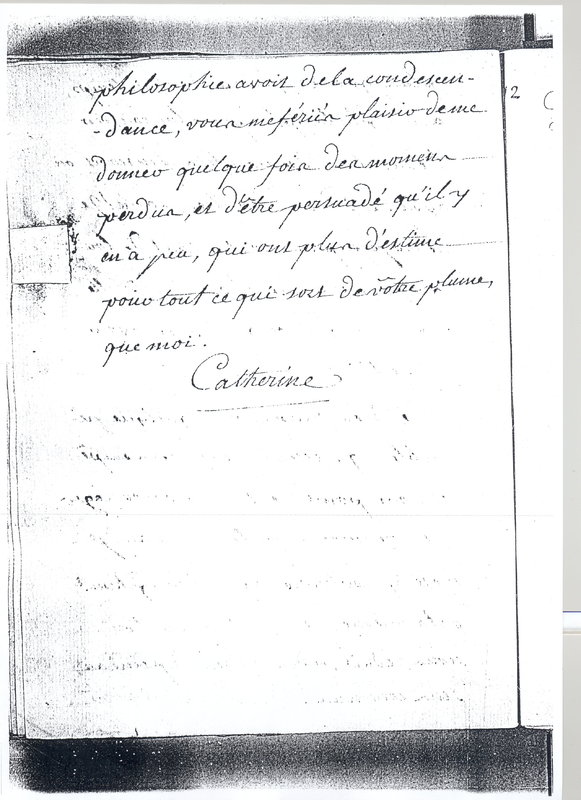 philosophie avoit de la condescen-
-dance, vous me feriés plaisir de me
donner quelque fois des momens
perdus, et d'être persuadé qu'il y
en à peu, qui ont plus d'estime
pour tout ce qui sort de vôtre plume,
que moi.
Catherine
12